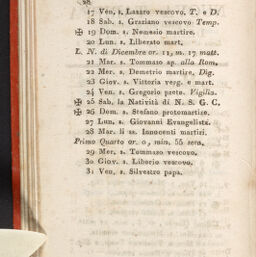 28
17 Ven. s. Lazaro vescovo. T. e D.
18 Sab. s. Graziano vescovo Temp.
✠ 19 Dom. s. Nemesio martire.
20 Lun. s. Liberato mart.
L. N. di Dicembre or. 11, m. 17 matt.
21 Mar. s. Tommaso ap. alla Rom.
22 Mer. s. Demetrio martire, Dig.
23 Giov. s. Vittoria verg. e mart.
24 Ven. s. Gregorio prete. Vigilia.
✠ 25 Sab. la Natività di N. S. G. C.
✠ 26 Dom. s. Stefano protomartire.
27 Lun. s. Giovanni Evangelista.
28 Mar. li ss. Innocenti martiri.
Primo Quarto or. 0, min. 55 sera.
29 Mer. s. Tommaso vescovo.
30 Giov. s. Liborio vescovo.
31 Ven. s. Silvestro papa.